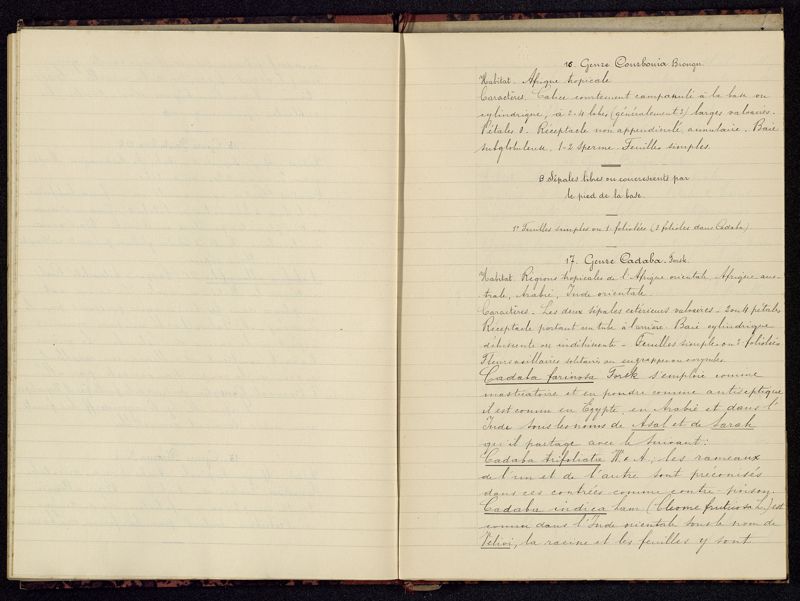 16. Genre Courbonia Brongn.
Habitat. Afrique tropicale
Caractères. Calice courtement campanulé à la base ou
cylindrique, à 2-4 lobes (généralement 3) larges valvaires.
Pétales 0. Réceptacle non appendiculé, annulaire. Baie
subglobuleuse, 1-2 sperme. Feuilles simples.
B Sépales libres ou concrescents par
le pied de la base.
1° Feuilles simples ou 1-foliolées (3 folioles dans Cadaba)
17. Genre Cadaba. Forsk.
Habitat. Régions tropicales de l'Afrique orientale, Afrique aus-
trale, Arabie, Inde orientale.
Caractères - Les deux sépales extérieurs valvaires - 2 ou 4 pétales
Réceptacle portant un tube à l'arrière. Baie cylindrique
déhiscente ou indéhiscente - Feuilles simples ou 3 foliolées
Fleurs axillaires solitaires ou en grappes ou corymbes.
Cadaba farinosa Forsk s'emploie comme
masticatoire et en poudre comme antiseptique
il est connu en Egypte, en Arabie et dans l'
Inde sous les noms de Asal et de Sarah
qu'il partage avec le suivant:
Cadaba trifoliata W. et A.; les rameaux
de l'un et de l'autre sont préconisés
dans ces contrées comme contre-poison.
Cadaba indica Lam (Cleome fruticosa L.) est
connu dans l'Inde orientale sous le nom de
Velivi, la racine et les feuilles y sont